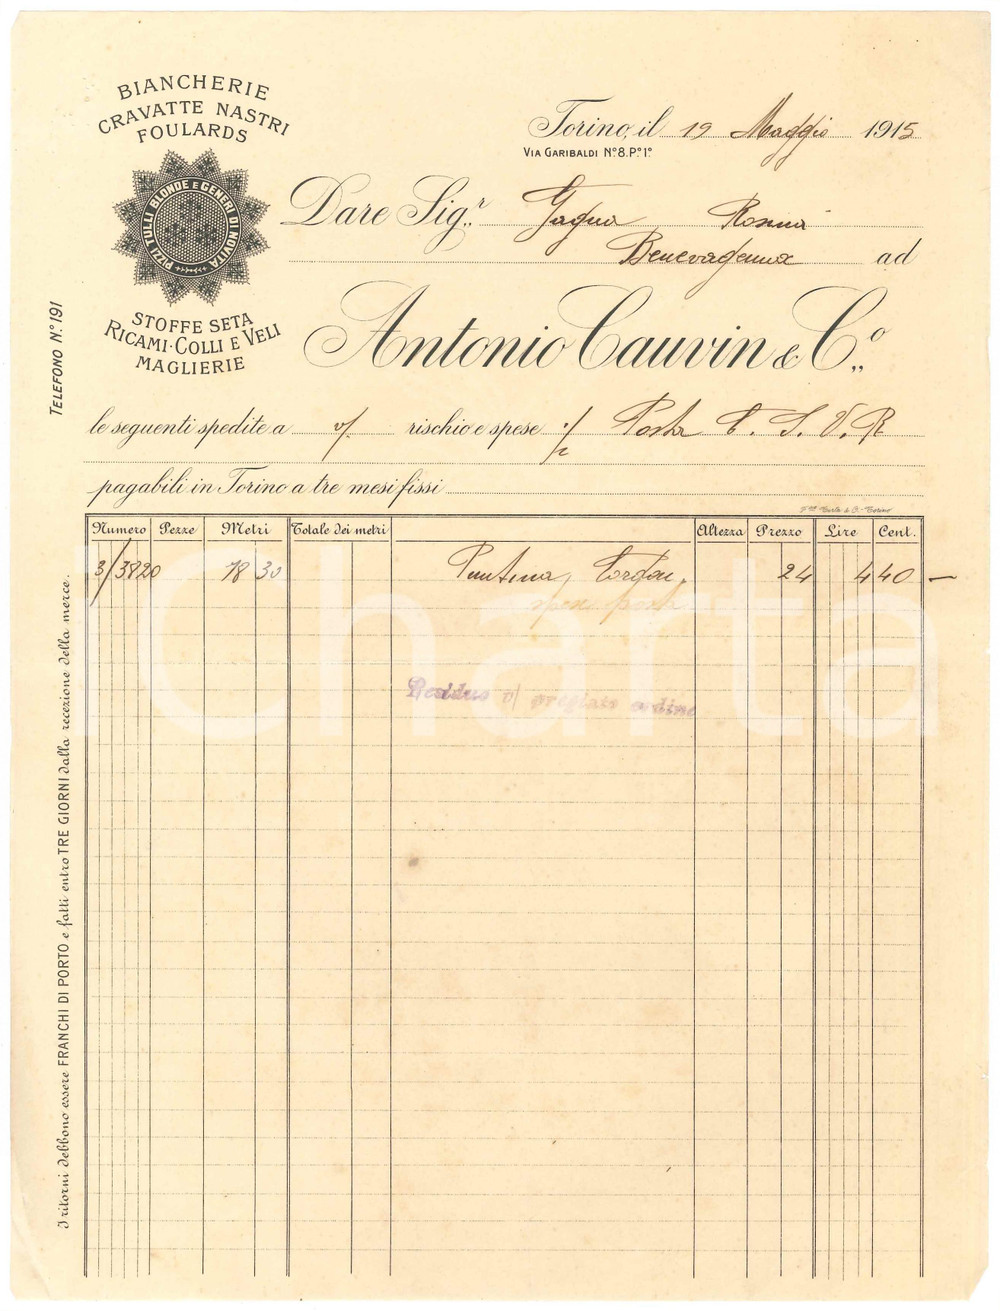 BIANCHERIE
CRAVATTE NASTRI
FOULARDS
PIZZI TULLI BLONDE E GENERI DI NOVITÀ
STOFFE SETA
RICAMI·COLLI E VELI
MAGLIERIE
TELEFONO N.º 191
Torino, il 19 Maggio 1915
VIA GARIBALDI Nº 8. P.º 1º
Dare Sig.r Gagna Rosina
Benevagenna ad
Antonio Cauvin & C.º
le seguenti spedite a v/ rischio e spese Posta
pagabili in Torino a tre mesi fissi
Numero Pezze Metri Totale dei metri Altezza Prezzo Lire Cent.
3/3820 18 30 24 4 40 —
Residuo v/ pregiato ordine
I ritorni debbono essere FRANCHI DI PORTO e fatti entro TRE GIORNI dalla recezione della merce.
iCharta